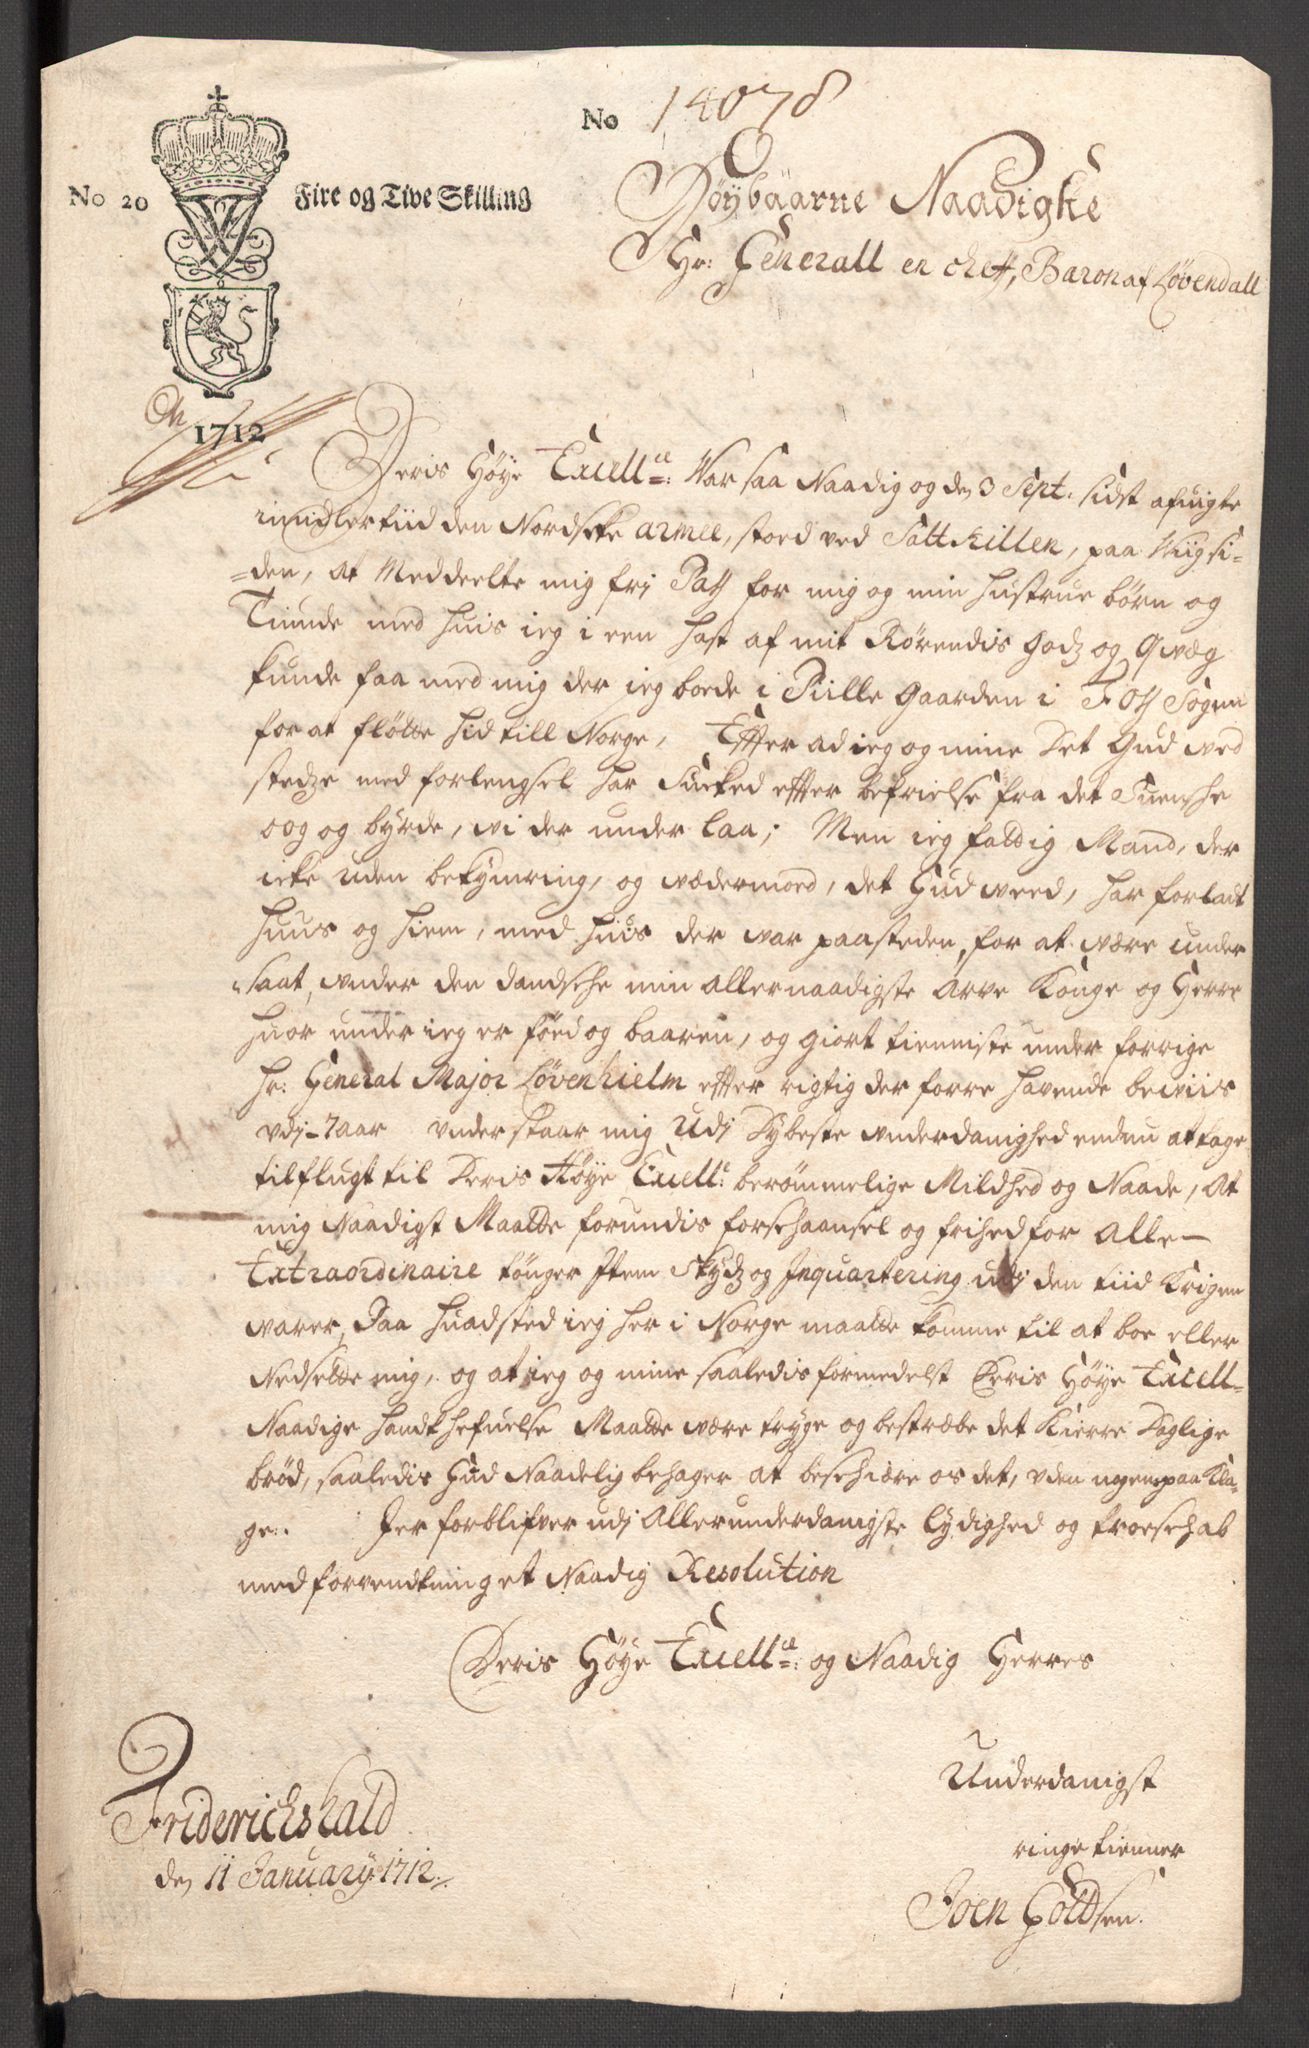 No 14078
No 20 Fire og Tive Skilling
1712
Höÿbaarne Naadigste
Hr: Generall en cheff, Baron af Løvendall
Deris Høÿe Excell:ce War saa Naadig og den 3 Sept: sidst afuigte
imidlertiid den Nordske armee, stoed ved Saltkillen, paa Wiigsi-
=den, at Meddeelte mig frj Pass for mig og min hustrue børn og
Tiunde med huis ieg i een hast af mit Rørendis godz og Qwæg
kunde faa med mig der ieg boede i Pille Gaarden i Foss Sogen
for at fløtte hid till Norge, Effter ad ieg og mine Det Gud ved
stedze med forlengsel har Sucked effter befrielse fra det Suenshe
oog og byrde, wi der under laa; Men ieg fattig Mand, der
icke uden bekÿmring, og wædermoed, det Gud weed, har forladt
huus og hiem, med huis der war paa steden, for at wære under
saat, under den dandsche min allernaadigste Arve Konge og Herre
huor under ieg er föed og baaren, og giort tienniste under forrige
hr: General Major Løvenhielm effter rigtig der forre havende beviis
udj 7 aar understaar mig Udj Dÿbeste underdanighed endnu at tage
tilflugt til Deris Høÿe Excell: berømmelige Mildhed og Naade, At
mig Naadigst Maatte forundis forschaansel og frihed for alle
Extraordinaire tønger Item Skÿdz og Inquartering udj den tiid Krigen
warer, Paa huad sted ieg her i Norge maatte komme til at boe eller
Nedsette mig, og at ieg og mine saaledis formedelst Deris Høÿe Excell=
Naadige handthefuelse Maatte wære trÿge og bestræbe det Kierre Daglige
brød, saaledis Gud Naadelig behager at beschiære os det, uden nogen paa Kla-
ge. Jer forblifver udj Allerunderdanigste lÿdighed og troeschab
med forvendtning et Naadig Resolution
Deris Høÿe Excell:ce og Naadig Herres
Underdanigst
ringe tienner
Joen Coldsen.
Friderichshald
den 11 Januarÿ 1712.